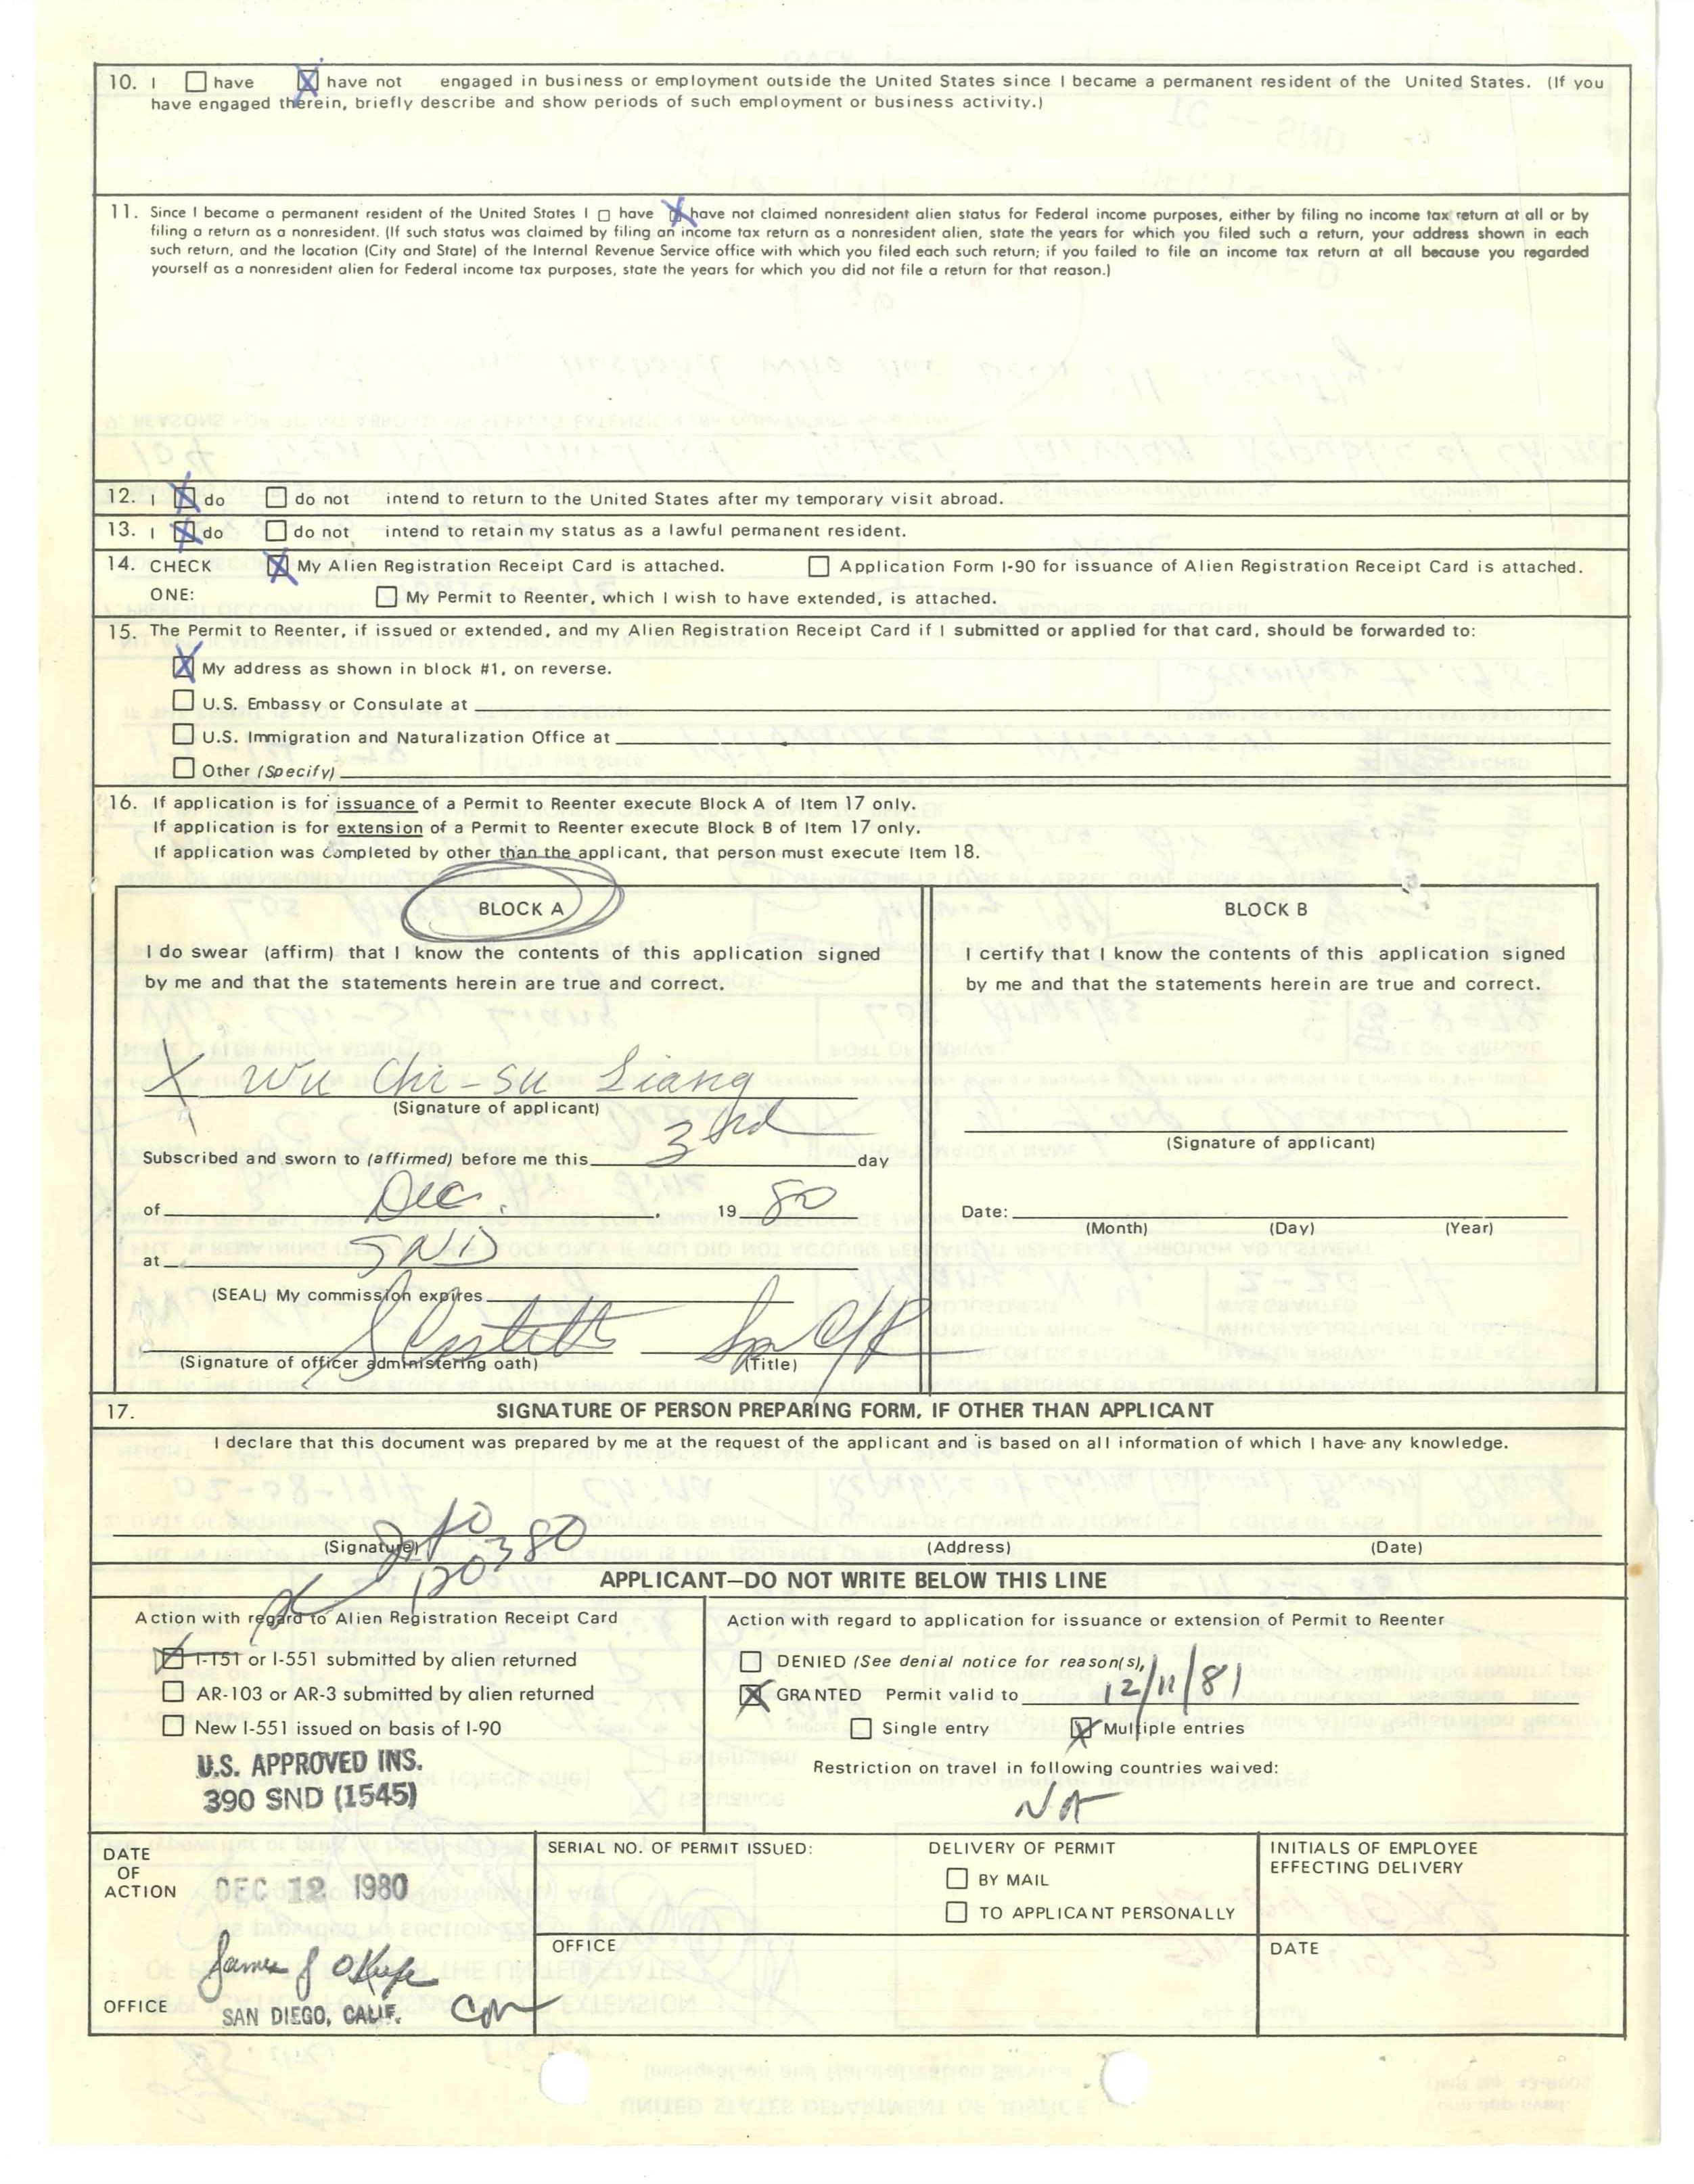 10. I ☐ have ☒ have not engaged in business or employment outside the United States since I became a permanent resident of the United States. (If you
have engaged therein, briefly describe and show periods of such employment or business activity.)
11. Since I became a permanent resident of the United States I ☐ have ☒ have not claimed nonresident alien status for Federal income purposes, either by filing no income tax return at all or by
filing a return as a nonresident. (If such status was claimed by filing an income tax return as a nonresident alien, state the years for which you filed such a return, your address shown in each
such return, and the location (City and State) of the Internal Revenue Service office with which you filed each such return; if you failed to file an income tax return at all because you regarded
yourself as a nonresident alien for Federal income tax purposes, state the years for which you did not file a return for that reason.)
12. I ☒ do ☐ do not intend to return to the United States after my temporary visit abroad.
13. I ☒ do ☐ do not intend to retain my status as a lawful permanent resident.
14. CHECK ☒ My Alien Registration Receipt Card is attached. ☐ Application Form I-90 for issuance of Alien Registration Receipt Card is attached.
ONE: ☐ My Permit to Reenter, which I wish to have extended, is attached.
15. The Permit to Reenter, if issued or extended, and my Alien Registration Receipt Card if I submitted or applied for that card, should be forwarded to:
☒ My address as shown in block #1, on reverse.
☐ U.S. Embassy or Consulate at
☐ U.S. Immigration and Naturalization Office at
☐ Other (Specify)
16. If application is for issuance of a Permit to Reenter execute Block A of Item 17 only.
If application is for extension of a Permit to Reenter execute Block B of Item 17 only.
If application was completed by other than the applicant, that person must execute Item 18.
BLOCK A
I do swear (affirm) that I know the contents of this application signed
by me and that the statements herein are true and correct.
X Wu Chi-su Liang
(Signature of applicant)
Subscribed and sworn to (affirmed) before me this 3rd day
of Dec. , 19 80
at SND
(SEAL) My commission expires
(Signature of officer administering oath) (Title)
BLOCK B
I certify that I know the contents of this application signed
by me and that the statements herein are true and correct.
(Signature of applicant)
Date:
(Month) (Day) (Year)
17. SIGNATURE OF PERSON PREPARING FORM, IF OTHER THAN APPLICANT
I declare that this document was prepared by me at the request of the applicant and is based on all information of which I have any knowledge.
120380
(Signature) (Address) (Date)
APPLICANT—DO NOT WRITE BELOW THIS LINE
Action with regard to Alien Registration Receipt Card
☒ I-151 or I-551 submitted by alien returned
☐ AR-103 or AR-3 submitted by alien returned
☐ New I-551 issued on basis of I-90
U.S. APPROVED INS.
390 SND (1545)
Action with regard to application for issuance or extension of Permit to Reenter
☐ DENIED (See denial notice for reason(s),
☒ GRANTED Permit valid to 12/11/81
☐ Single entry ☒ Multiple entries
Restriction on travel in following countries waived:
NA
DATE
OF
ACTION DEC 12 1980
James J O'Keefe
OFFICE SAN DIEGO, CALIF.
SERIAL NO. OF PERMIT ISSUED:
DELIVERY OF PERMIT
☐ BY MAIL
☐ TO APPLICANT PERSONALLY
INITIALS OF EMPLOYEE
EFFECTING DELIVERY
OFFICE
DATE